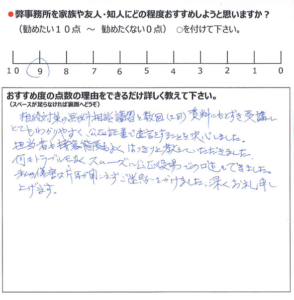 ●弊事務所を家族や友人・知人にどの程度おすすめしようと思いますか？
（勧めたい１０点 ～ 勧めたくない０点） ○を付けて下さい。
10 9 8 7 6 5 4 3 2 1 0
おすすめ度の点数の理由をできるだけ詳しく教えて下さい。
（スペースが足らなければ裏面へどうぞ）
相続対策の 相続講習を数回 資料にもとずき受講し
とてもわかりやすく、公正証書で遺言をすることを決心しました。
担当者も 接客態度もよく はっきりと教えていただきました。
何のトラブルもなく スムーズに公正役場での できました。
私の 片耳が聞こえず ご迷惑をかけました。深くお礼申し
上げます。